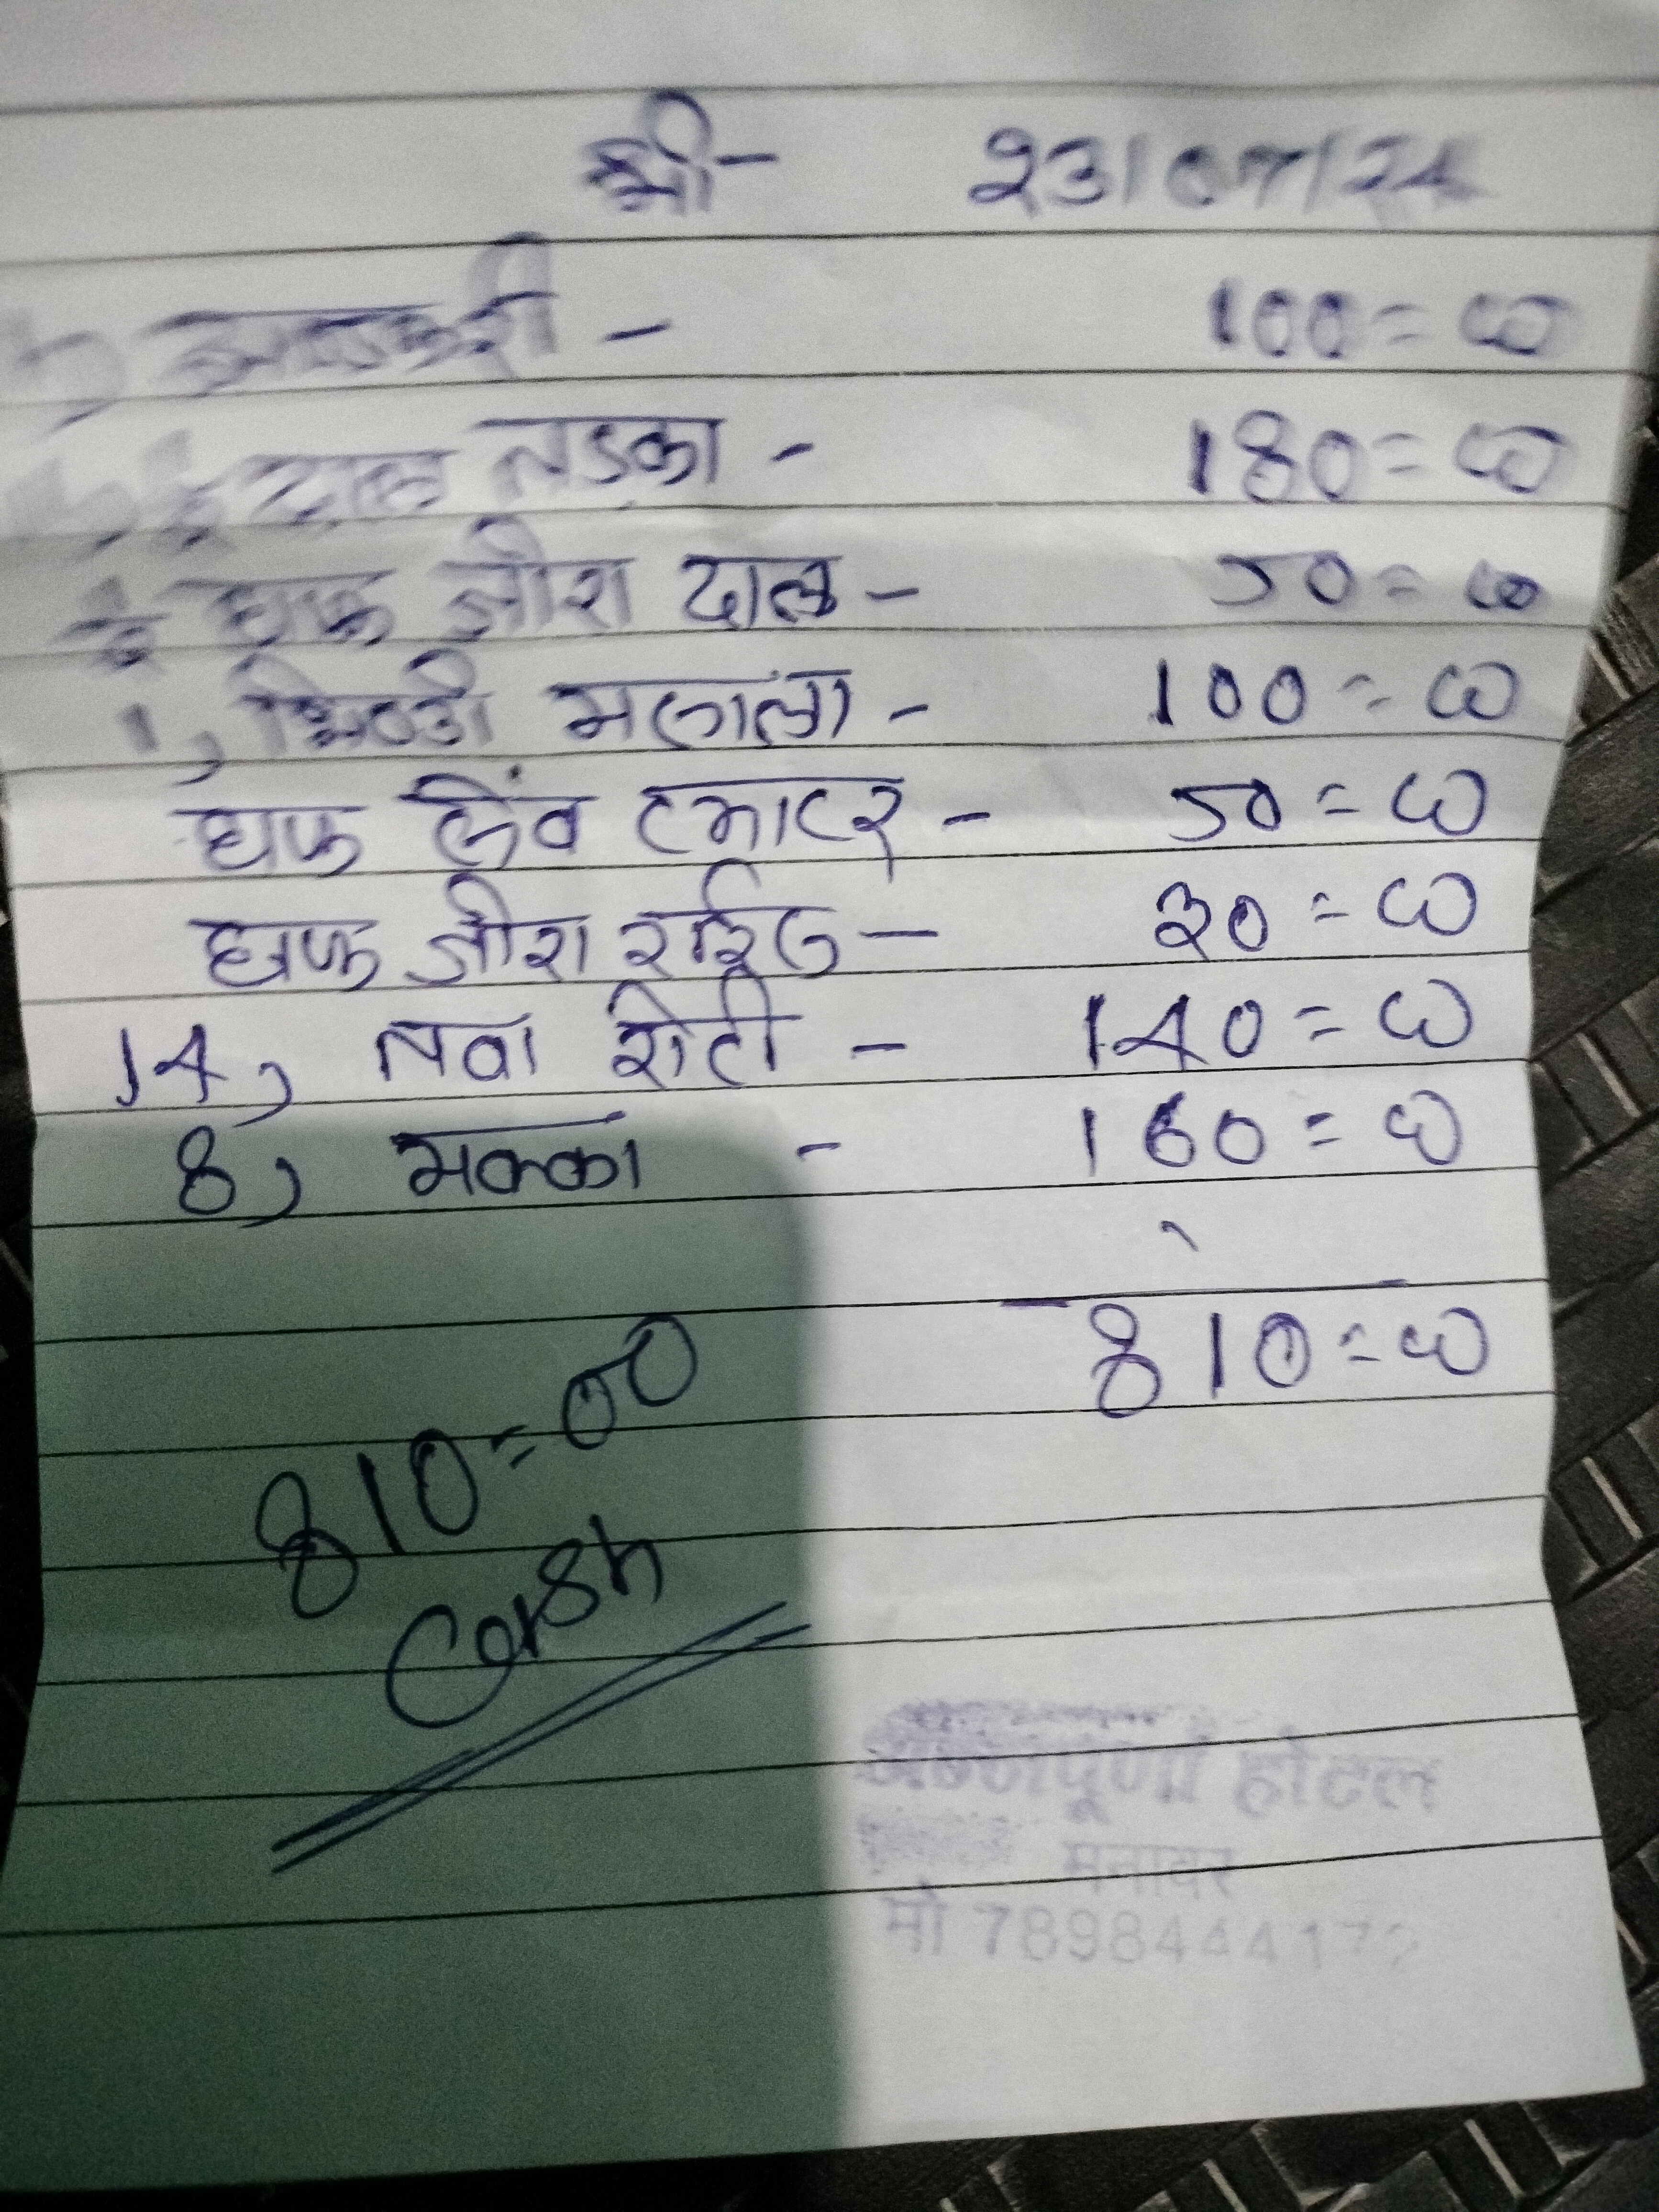 श्री- 23/07/24
- 100=00
दाल तड़का - 180=00
हाफ जीरा दाल - 50=00
1, भिण्डी मसाला - 100=00
हाफ सेंव टमाटर - 50=00
हाफ जीरा राईस - 30=00
14, तवा रोटी - 140=00
8, मक्का - 160=00
810=00
810=00
Cash
होटल
मनावर
मो 7898444172